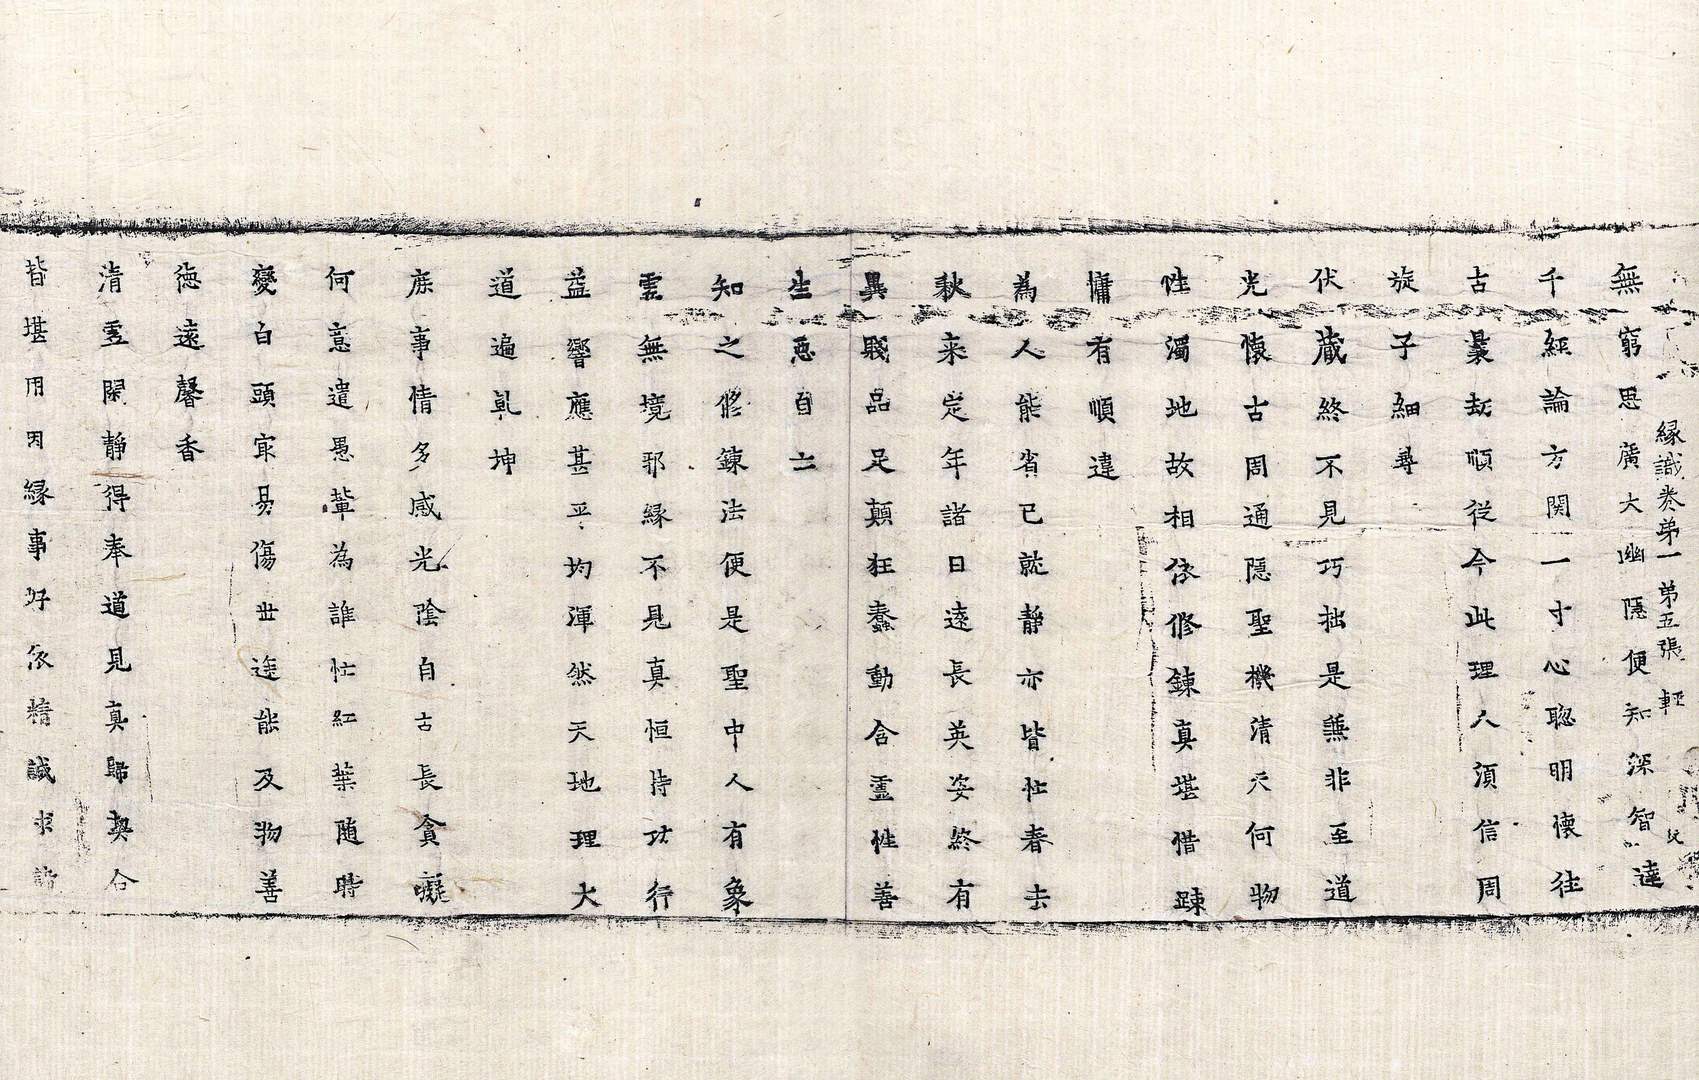 無窮思廣大幽隱便知深智達
緣識卷第一 第五張 輕
千經論方開一寸心聦明懷往
古曩劫順從今此理人湏信周
旋子細尋
伏藏終不見巧拙是無非至道
光懷古周通隱聖機清天何物
性濁地故相依修鍊真堪惜踈
慵有順違
為人能省己就静亦皆性春去
秋来定年諸日遠長英姿終有
異賤品足顛狂蠢動含靈性善
生惡自亡
知之修鍊法便是聖中人有象
雲無境邪緣不見真恒持功行
益響應甚平均渾然天地理大
道遍乹坤
庶事情多感光陰自古長貪癡
何意遣愚輩為誰忙紅葉随時
變白頭㝡易傷世途能及物善
德遠馨香
清虛閑静得奉道見真歸契合
皆堪用因緣事好依精誠求諸